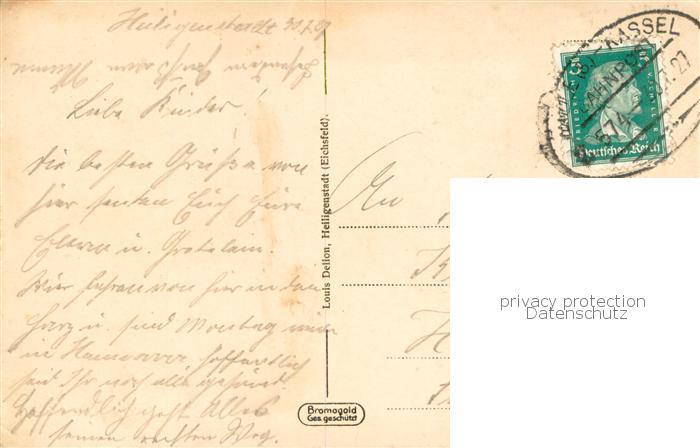 Heiligenstadt 30.7.27
Liebe Kinder!
die besten Grüße von
hier senden Euch Eure
Eltern u. Gretelein.
Wir fahren von hier in den
Harz u. sind Montag wieder
in Hannover. Hoffentlich
seid Ihr noch alle gesund.
Hoffentlich geht Alles
seinen rechten Weg.
Louis Delion, Heiligenstadt (Eichsfeld).
Bromogold
Ges. geschützt
An
KASSEL
BAHNPOST
27
FRIEDRICH
Deutsches Reich
privacy protection
Datenschutz